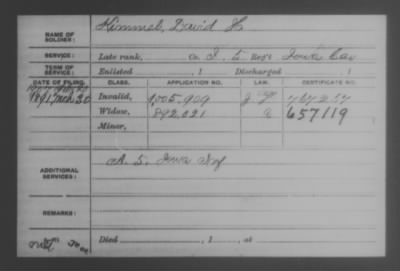 NAME OF SOLDIER: Himmel, David H
SERVICE: Late rank, Co. I, 5 Reg't Iowa Cav
TERM OF SERVICE: Enlisted , 1 Discharged , 1
DATE OF FILING. CLASS. APPLICATION NO. LAW. CERTIFICATE NO.
Invalid, 1,005,909
1891, Mch 30 Widow, 892,021 657119
Minor,
ADDITIONAL SERVICES: A. 5. Iowa Inf
REMARKS:
Died , 1 , at